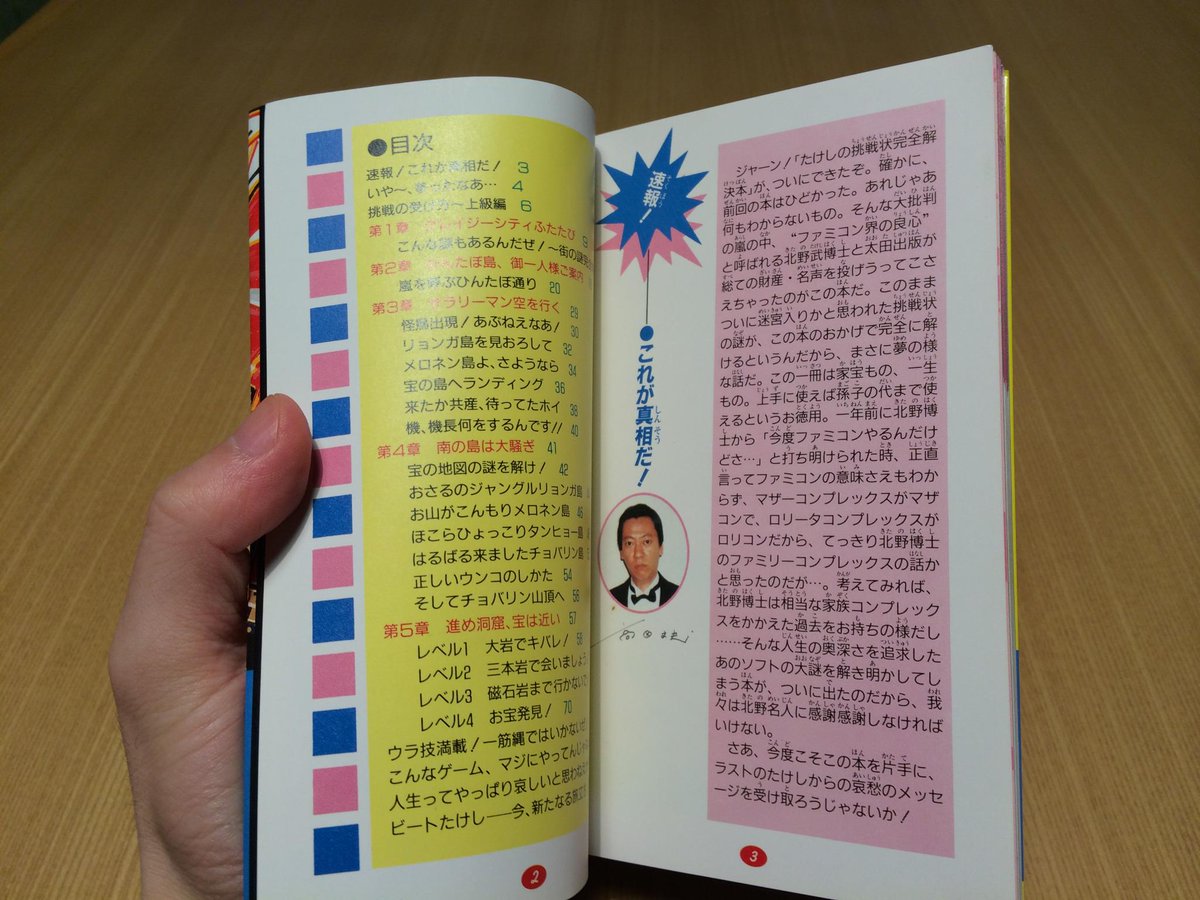 ●目次
速報！これが真相だ！ 3
いや〜、まったなあ… 4
挑戦の受け方〜上級編 6
第1章 クレイジーシティふたたび 9
こんな謎もあるんだぜ！〜街の謎
第2章 ひんたぼ島、御一人様ご案内
嵐を呼ぶひんたぼ通り 20
第3章 サラリーマン空を行く 29
怪鳥出現！あぶねえなあ！ 30
リョンガ島を見おろして 32
メロネン島よ、さようなら 34
宝の島へランディング 36
来たか共産、待ってたホイ 38
機、機長何をするんです!! 40
第4章 南の島は大騒ぎ 41
宝の地図の謎を解け！ 42
おさるのジャングルリョンガ島
お山がこんもりメロネン島 46
ほこらひょっこりタンヒョー島
はるばる来ましたチョバリン島
正しいウンコのしかた 54
そしてチョバリン山頂へ 56
第5章 進め洞窟、宝は近い 57
レベル1 大岩でキバレ！ 58
レベル2 三本岩で会いましょう
レベル3 磁石岩まで行かないで
レベル4 お宝発見！ 70
ウラ技満載！一筋縄ではいかないぜ
こんなゲーム、マジにやってんじゃ
人生ってやっぱり哀しいと思わねえ
ビートたけし——今、新たなる
2
速報！
●これが真相だ！
ジャーン！「たけしの挑戦状完全解
決本」が、ついにできたぞ。確かに、
前回の本はひどかった。あれじゃあ
何もわからないもの。そんな大批判
の嵐の中、“ファミコン界の良心”
と呼ばれる北野武博士と太田出版が
総ての財産・名声を投げうってこさ
えちゃったのがこの本だ。このまま
ついに迷宮入りかと思われた挑戦状
の謎が、この本のおかげで完全に解
けるというんだから、まさに夢の様
な話だ。この一冊は家宝もの、一生
もの。上手に使えば孫子の代まで使
えるというお徳用。一年前に北野博
士から「今度ファミコンやるんだけ
どさ…」と打ち明けられた時、正直
言ってファミコンの意味さえもわか
らず、マザーコンプレックスがマザ
コンで、ロリータコンプレックスが
ロリコンだから、てっきり北野博士
のファミリーコンプレックスの話か
と思ったのだが…。考えてみれば、
北野博士は相当な家族コンプレック
スをかかえた過去をお持ちの様だし
……そんな人生の奥深さを追求した
あのソフトの大謎を解き明かしてし
まう本が、ついに出たのだから、我
々は北野名人に感謝感謝しなければ
いけない。
さあ、今度こそこの本を片手に、
ラストのたけしからの哀愁のメッセ
ージを受け取ろうじゃないか！
3